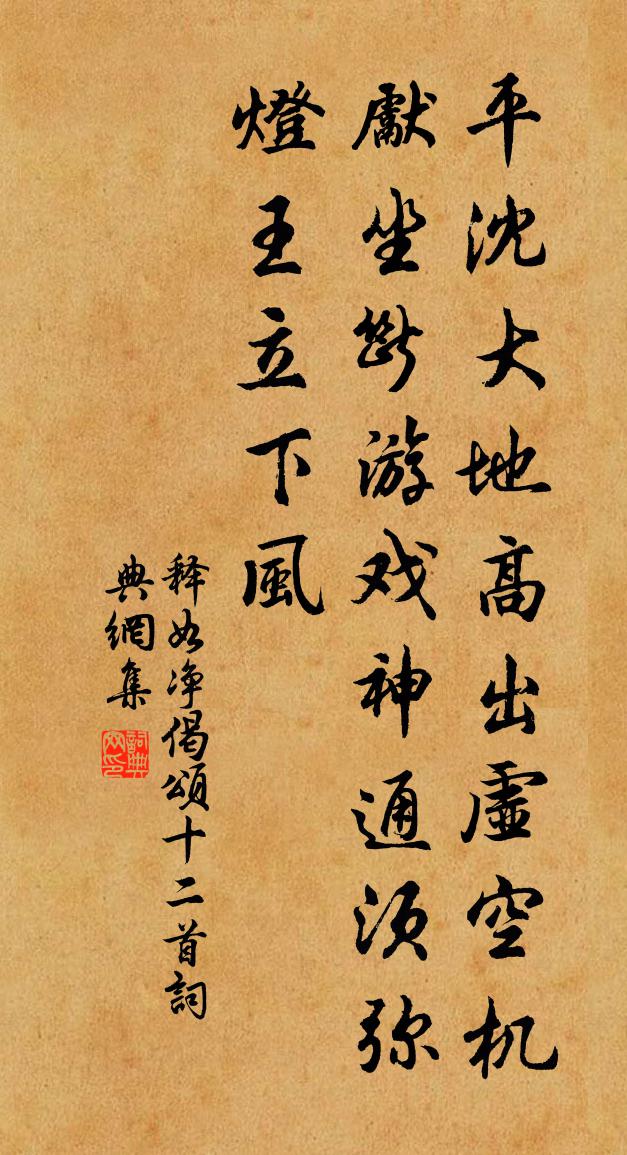 平沈大地高出虛空机
獻坐斷游戏神通须弥
燈王立下風
释如净偈頌十二首詞
典網集
詞典
网印